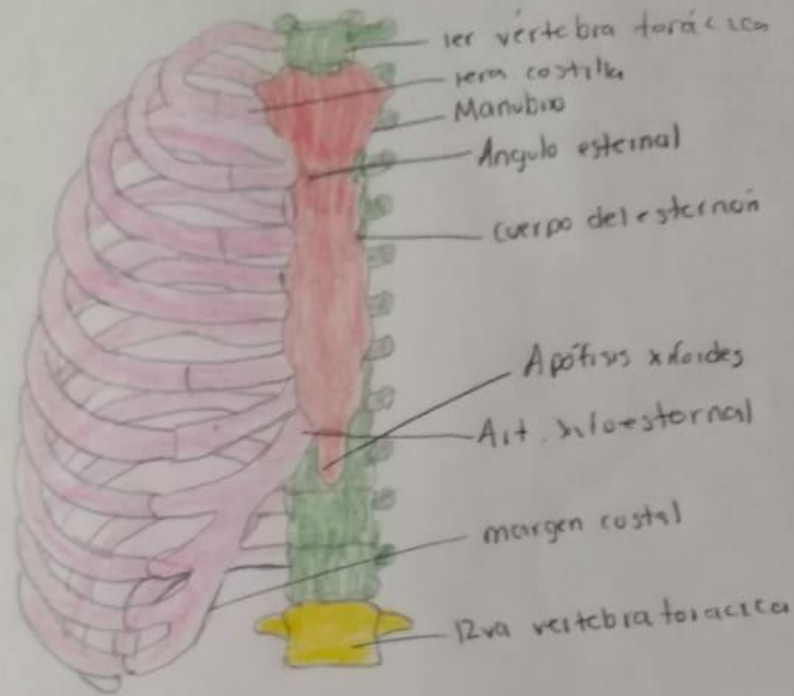 1er vértebra torácica
1era costilla
Manubrio
Angulo esternal
cuerpo del esternón
Apófisis xifoides
Art. xifoesternal
margen costal
12va vertebra toracica